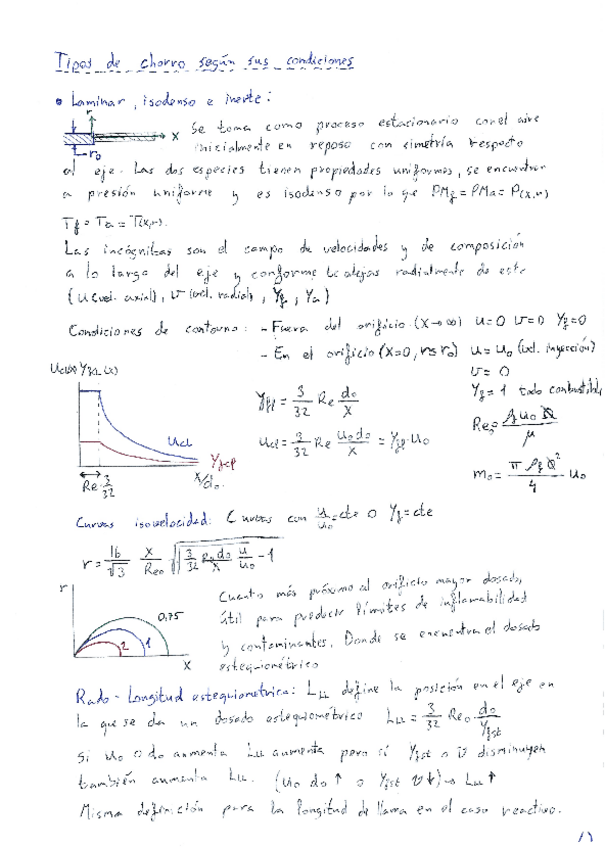 Tipos de chorro según sus condiciones
• Laminar, isodenso e inerte:
r
x
r₀
Se toma como proceso estacionario con el aire
inicialmente en reposo con simetría respecto
al eje. Las dos especies tienen propiedades uniformes, se encuentran
a presión uniforme y es isodenso por lo que PMf = PMa = P(x,r)
Tf = Ta = T(x,r).
Las incógnitas son el campo de velocidades y de composición
a lo largo del eje y conforme te alejas radialmente de este
(u (vel. axial), v (vel. radial), Yf, Ya)
Condiciones de contorno: - Fuera del orificio (x→∞) u=0 v=0 Yf=0
- En el orificio (x=0, r≤r₀) u = u₀ (vel. inyección)
v = 0
Yf = 1 todo combustible
Ucl
x/d₀
Re 3/32
= 3/32 Re d₀/x
ucl = 3/32 Re u₀d₀/x = · u₀
Re₀ =
μ
m₀ = u₀
Curvas isovelocidad: Curvas con u/u₀ = cte o Yf = cte
r = 16/√3 x/Re₀ √ - 1
r
0,75
1
2
x
Cuanto más próximo al orificio mayor dosado,
útil para predecir límites de inflamabilidad
y contaminantes. Donde se encuentra el dosado
estequiométrico
Longitud estequiométrica: define la posición en el eje en
la que se da un dosado estequiométrico = 3/32 Re₀ d₀/Yfst
Si u₀ o d₀ aumenta aumenta pero si Yfst o υ disminuyen
también aumenta (u₀ d₀ ↑ o Yfst υ ↓) → ↑
Misma definición para la longitud de llama en el caso reactivo.